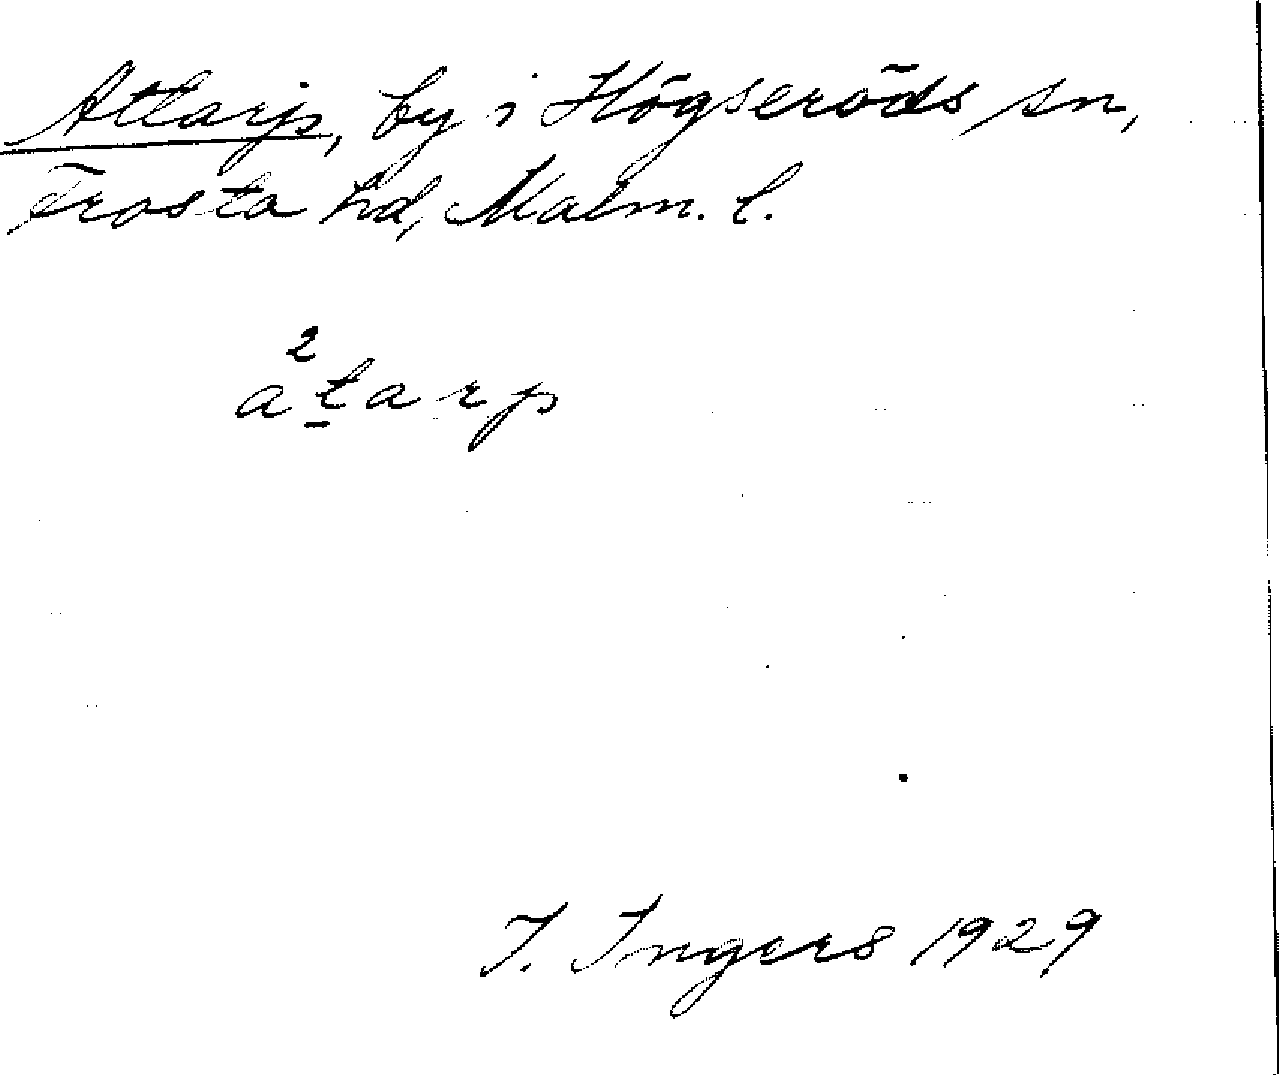 Attarp, by i Högseröds sn,
Frosta hd, Malm. l.
a²t̲arp
I. Ingers 1929